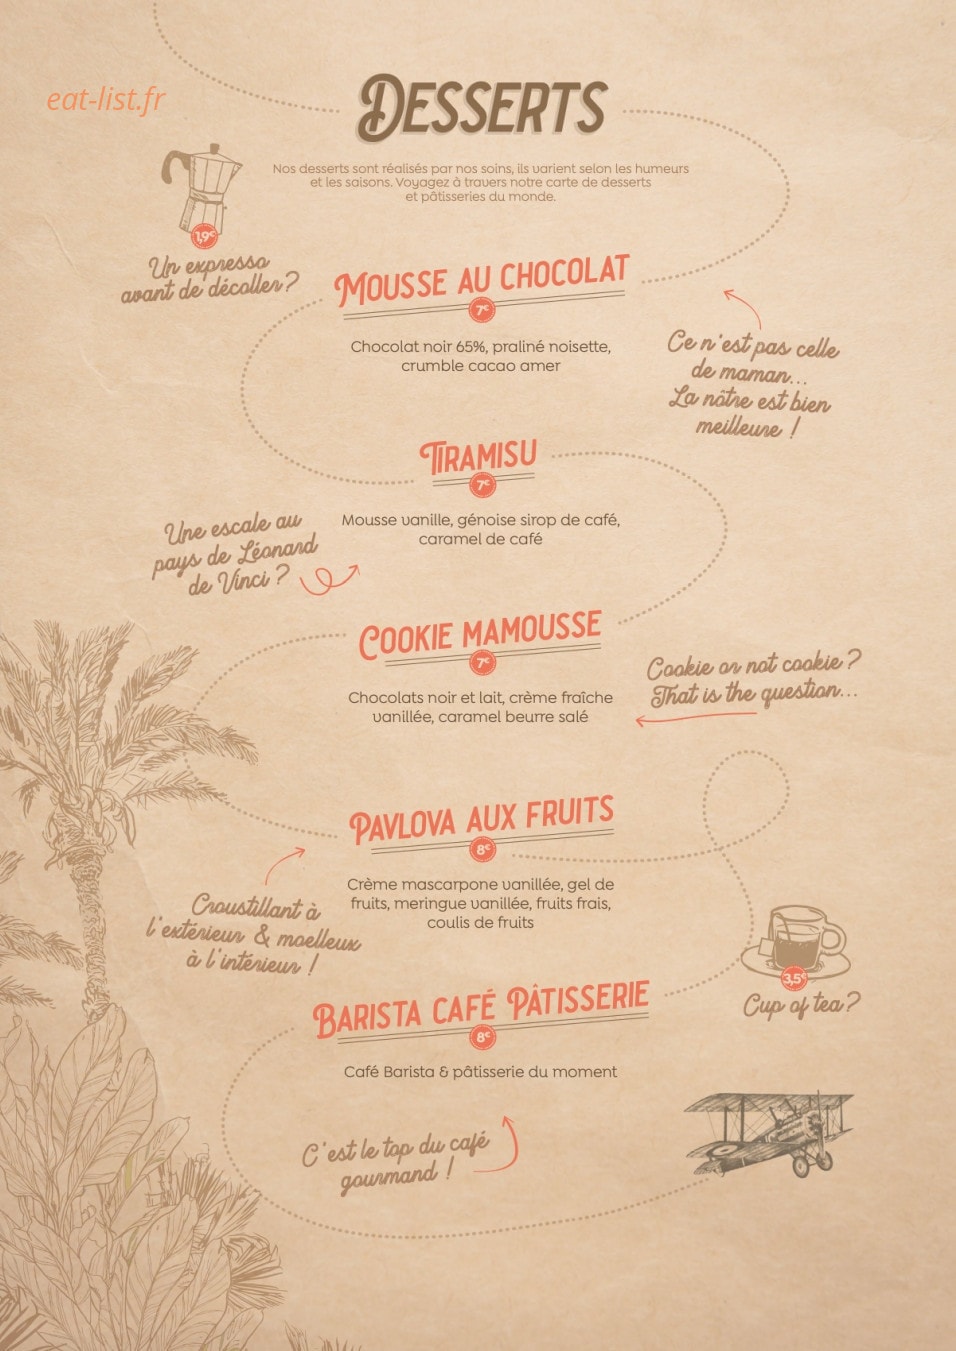 eat-list.fr
DESSERTS
Nos desserts sont réalisés par nos soins, ils varient selon les humeurs
et les saisons. Voyagez à travers notre carte de desserts
et pâtisseries du monde.
1,9€
Un expresso
avant de décoller ?
MOUSSE AU CHOCOLAT
7€
Chocolat noir 65%, praliné noisette,
crumble cacao amer
Ce n'est pas celle
de maman...
La nôtre est bien
meilleure !
TIRAMISU
7€
Mousse vanille, génoise sirop de café,
caramel de café
Une escale au
pays de Léonard
de Vinci ?
COOKIE MAMOUSSE
7€
Chocolats noir et lait, crème fraîche
vanillée, caramel beurre salé
Cookie or not cookie ?
That is the question...
PAVLOVA AUX FRUITS
8€
Crème mascarpone vanillée, gel de
fruits, meringue vanillée, fruits frais,
coulis de fruits
Croustillant à
l'extérieur & moelleux
à l'intérieur !
3,5€
Cup of tea ?
BARISTA CAFÉ PÂTISSERIE
8€
Café Barista & pâtisserie du moment
C'est le top du café
gourmand !